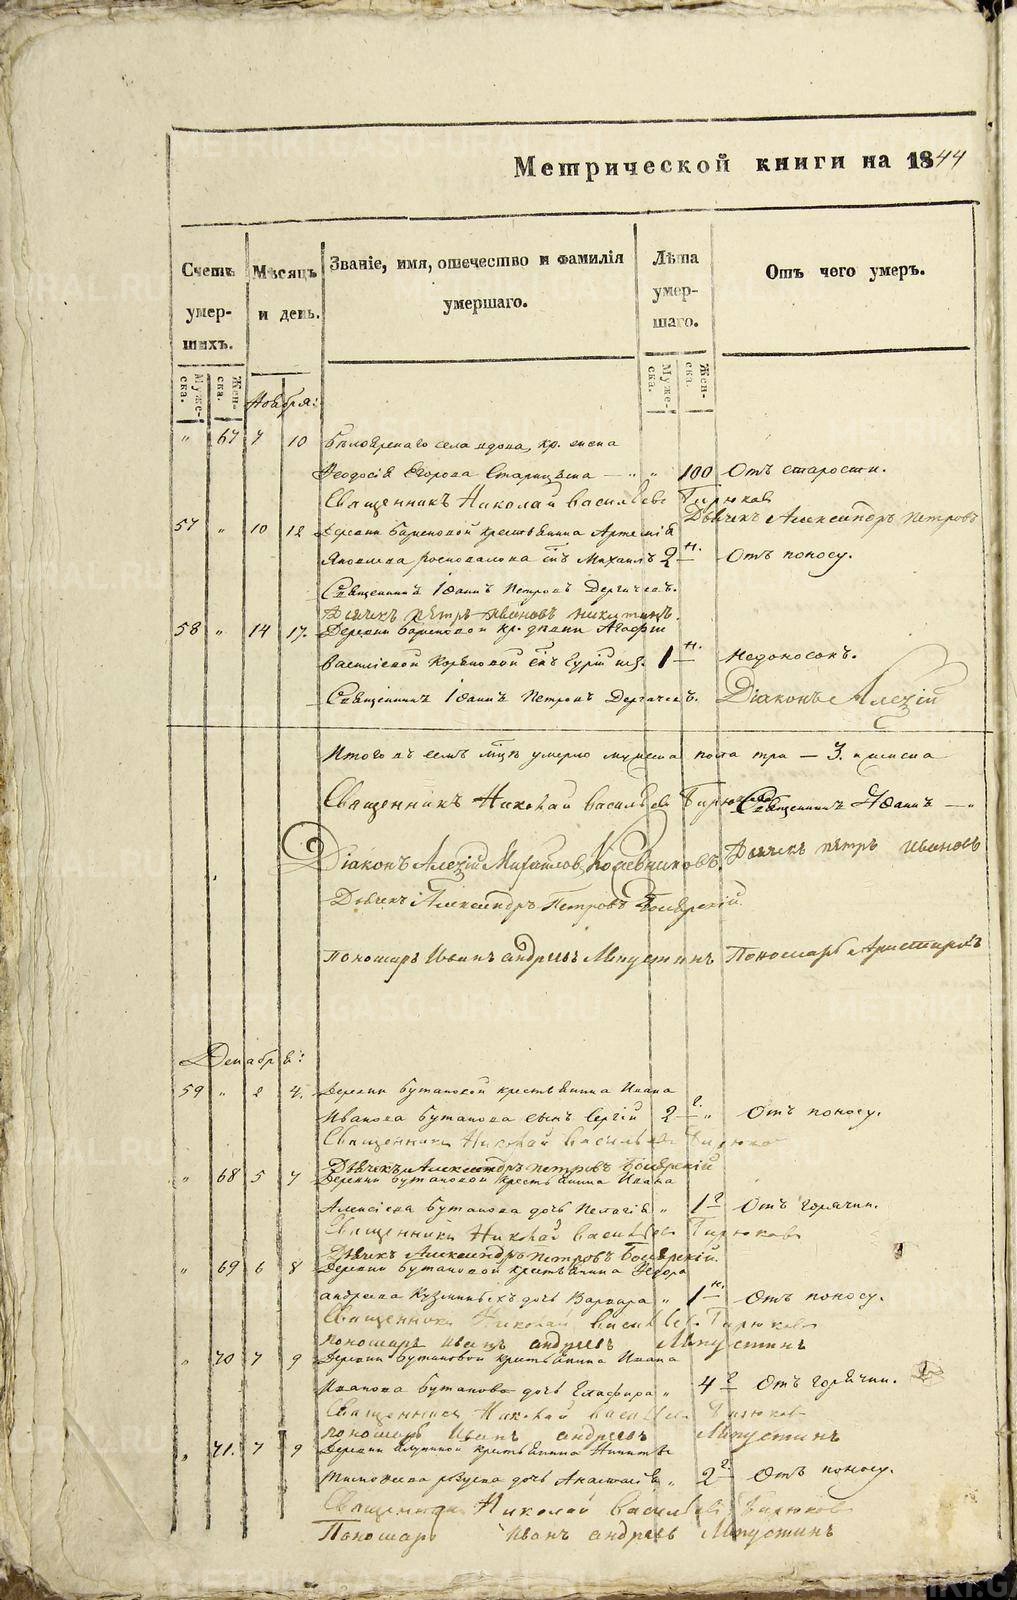 Метрической книги на 1844
Счетъ умершихъ.
Мѣсяцъ и день.
Званіе, имя, отечество и фамилія умершаго.
Лѣта умершаго.
Отъ чего умеръ.
Мужеска. Женска.
Мужеска. Женска.
Ноября:
" 67 7 10 Бѣлоярскаго села вдова, кр. жена
Феодосія Егорова Старицына — " " 100 Отъ старости.
Священникъ Николай Васильевъ Бирюковъ
Дьячекъ Александръ Петровъ
57 " 10 12 Деревни Баженовой крестьянина Артемія
Яковлева сынъ Михаилъ 2 н. Отъ поносу.
Священникъ Іоаннъ Петровъ Дергачевъ.
Дьячекъ Петръ Ивановъ Никитинъ.
58 " 14 17. Деревни Баженовой кр. дѣвки Агафіи
Василіевой сынъ Гурій 1 н. Недоносокъ.
Священникъ Іоаннъ Петровъ Дергачевъ. Діаконъ Алексій
Итого въ семъ мцѣ умерло мужеска пола три — 3. женска
Священникъ Николай Васильевъ Бирюковъ Священникъ Іоаннъ — "
Діаконъ Алексій Михайловъ Кожевниковъ. Дьячекъ Петръ Ивановъ
Дьячекъ Александръ Петровъ Боярскій.
Пономарь Иванъ Андреевъ Пономарь
Декабря:
59 " 2 4. Деревни Бутаковой крестьянина Ивана
Иванова Бутакова сынъ Сергій 2 " Отъ поносу.
Священникъ Николай Васильевъ Бирюковъ
Дьячекъ Александръ Петровъ Боярскій
" 68 5 7 Деревни Бутаковой крестьянина Ивана
Алексіева Бутакова дочь Пелагія " 1 Отъ горячки.
Священникъ Николай Васильевъ Бирюковъ
Дьячекъ Александръ Петровъ Боярскій.
" 69 6 8 Деревни Бутаковой крестьянина
Андреева Кузминыхъ дочь Варвара " 1 н. Отъ поносу.
Священникъ Николай Васильевъ Бирюковъ
Пономарь Иванъ Андреевъ
" 70 7 9 Деревни Бутаковой крестьянина Ивана
Иванова Бутакова дочь Глафира " 4 Отъ горячки.
Священникъ Николай Васильевъ Бирюковъ
Пономарь Иванъ Андреевъ
" 71. 7 9 Деревни крестьянина Никиты
дочь Анастасія " 2 Отъ поносу.
Священникъ Николай Васильевъ Бирюковъ
Пономарь Иванъ Андреевъ
METRIKI.GASO-URAL.RU